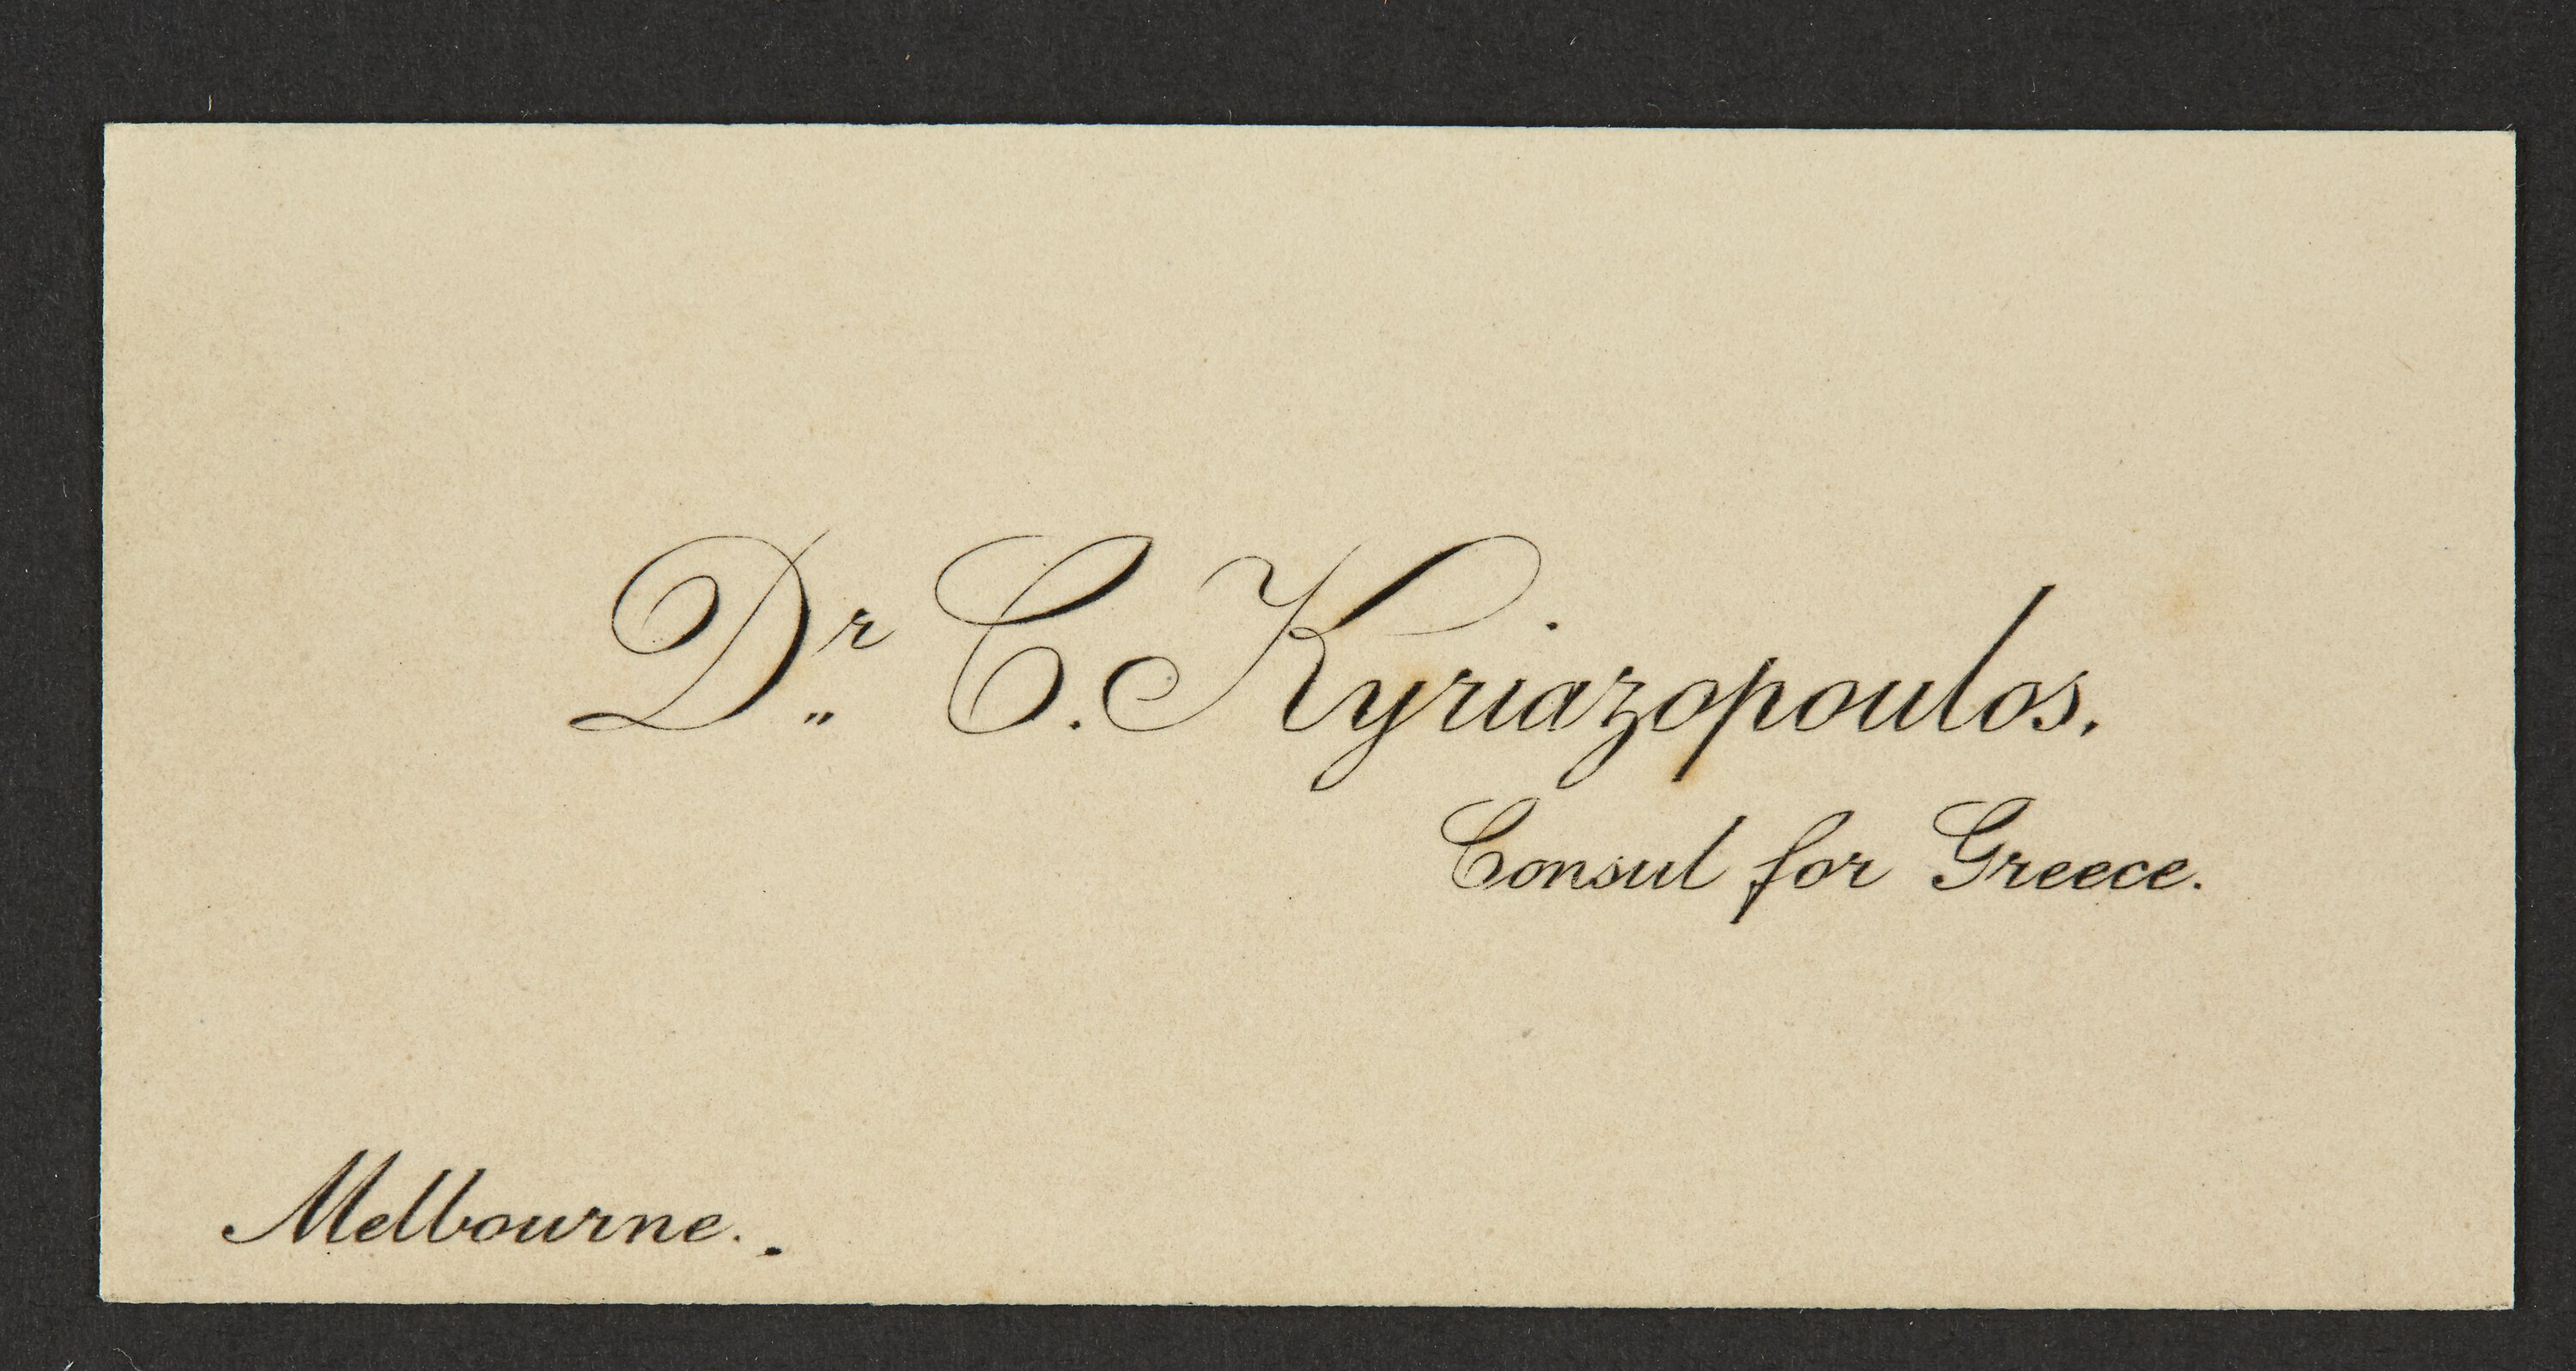 Dr C. Kyriazopoulos.
Consul for Greece.
Melbourne.